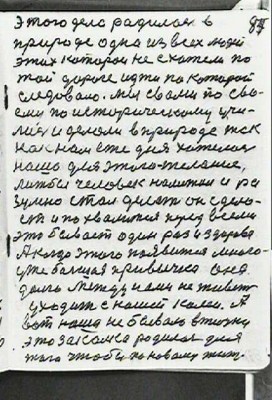 этого дела родился в 87
природе одна из всех людей
этих которой не схотел по
той дороге идти по которой
следовало. Мы с вами по сво-
ему по историческому учи-
лись и делали в природе так
как нам эте для хотелося
наша для этого желание,
лижбы человек на
зумно стал делать он сдело-
ет и по хвалится перед всеми
это бывает один раз и здорово
А когда этого появится много-
уже бальшая привычка она
долго между нами не живет
уходит с нашей колеи. А
вот наша не бывало в жизни
это закалка родилася для
того чтобы по новому жить.